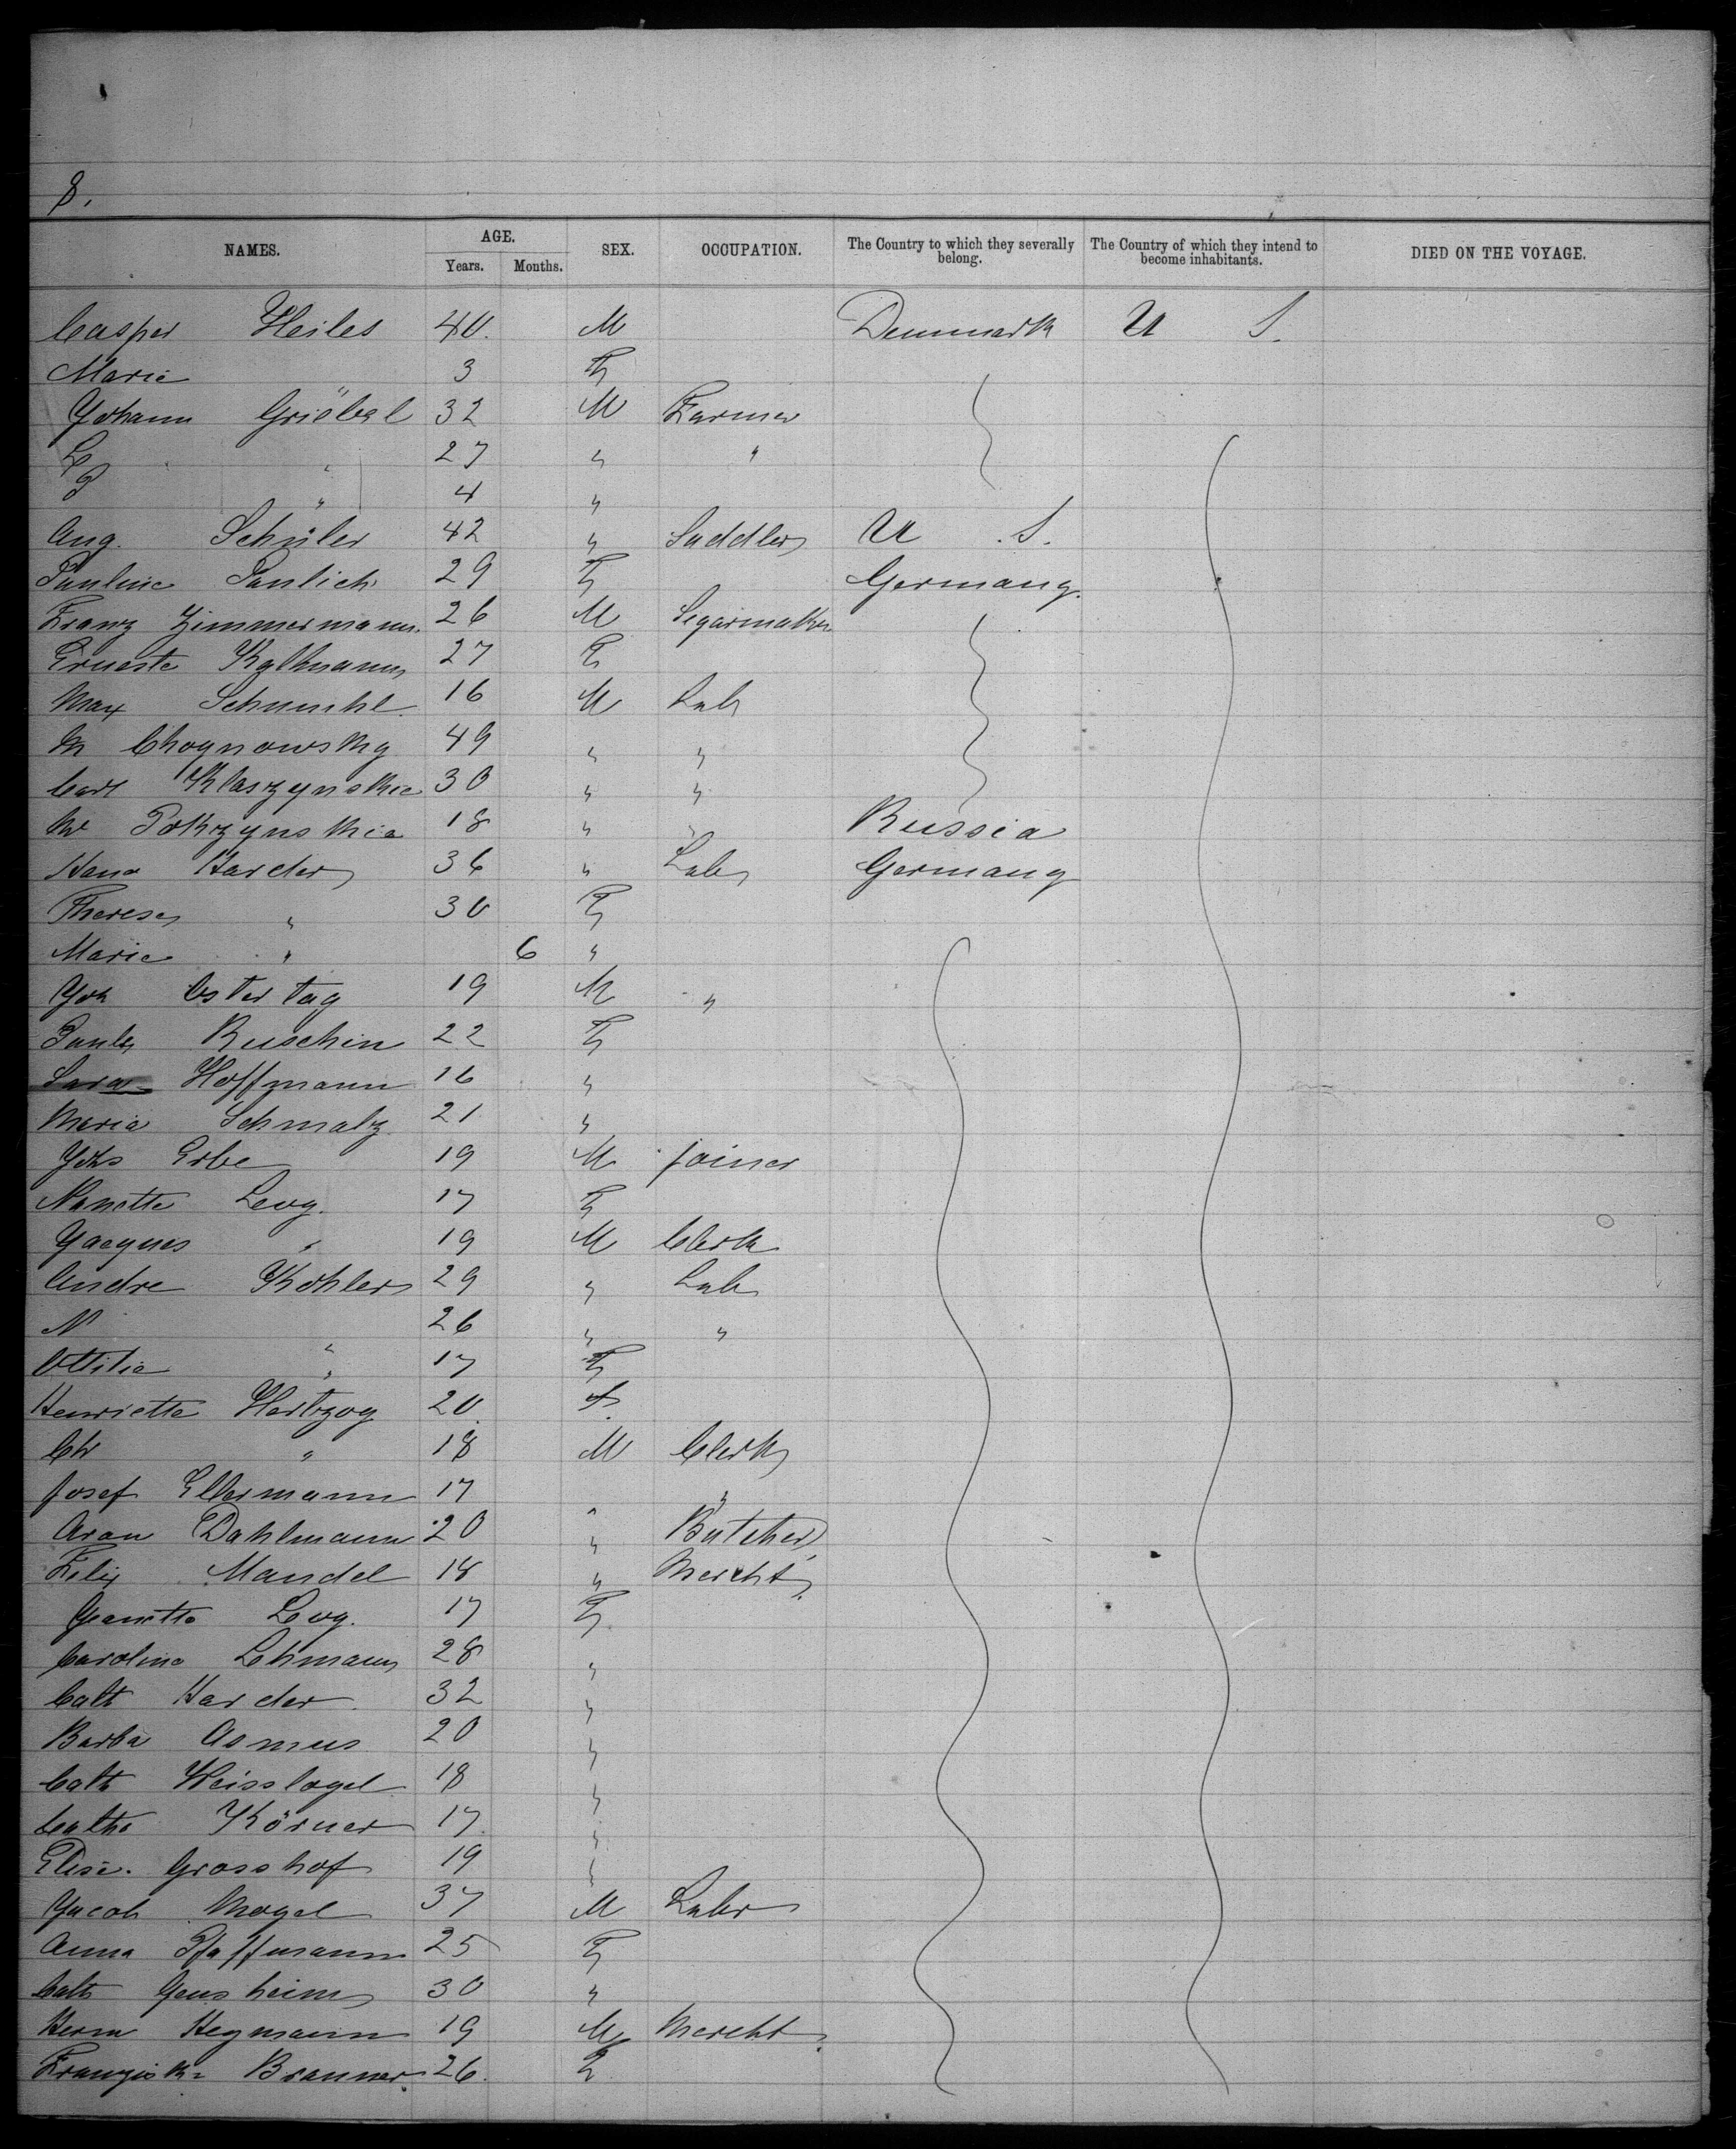 8.
NAMES. AGE. Years. Months. SEX. OCCUPATION. The Country to which they severally belong. The Country of which they intend to become inhabitants. DIED ON THE VOYAGE.
Casper Heiles 40. M Denmark U S.
Marie 3 F
Johann Griöbel 32 M Farmer
L " 27 " "
P " 4 "
Aug. Schüler 42 " Saddler U S.
Pauline Paulich 29 F Germany.
Franz Zimmermann. 26 M Segarmaker
Erneste Kallmann 27 F
Max Schumhl 16 M Lab
M Choynowsky 49 " "
Carl Klaszynskie 30 " "
W Pokrzynskie 18 " " Russia
Hans Harder 36 " Lab Germany
Therese " 30 F
Marie " 6 "
Joh Ostertag 19 M "
Paula Ruschin 22 F
Sara Hoffmann 16 "
Maria Schmalz 21 "
Johs Erbe 19 M joiner
Nanette Levy. 17 F
Jacques " 19 M Clerk
Andre Kohler 29 " Lab
N " 26 " "
Ottilie " 17 F
Henriette Hertzog 20. f.
Ch " 18 M Clerk
Josef Ellermann 17 " "
Aron Dahlmann 20 " Butcher
Felix Mandel 18 " Mercht.
Jeanette Levy. 17 F
Caroline Lehmann 28 "
Cath Harder 32 "
Barba Asmus 20 "
Cath Weisslogel 18 "
Cathe Körner 17 "
Elise. Grosshof 19 "
Jacob Mogel 37 M Labr
Anna Pfaffmann 25 F
Cath Gensheim 30 "
Herm Heymann 19 M Mercht.
Franzisk= Branner. 26. F